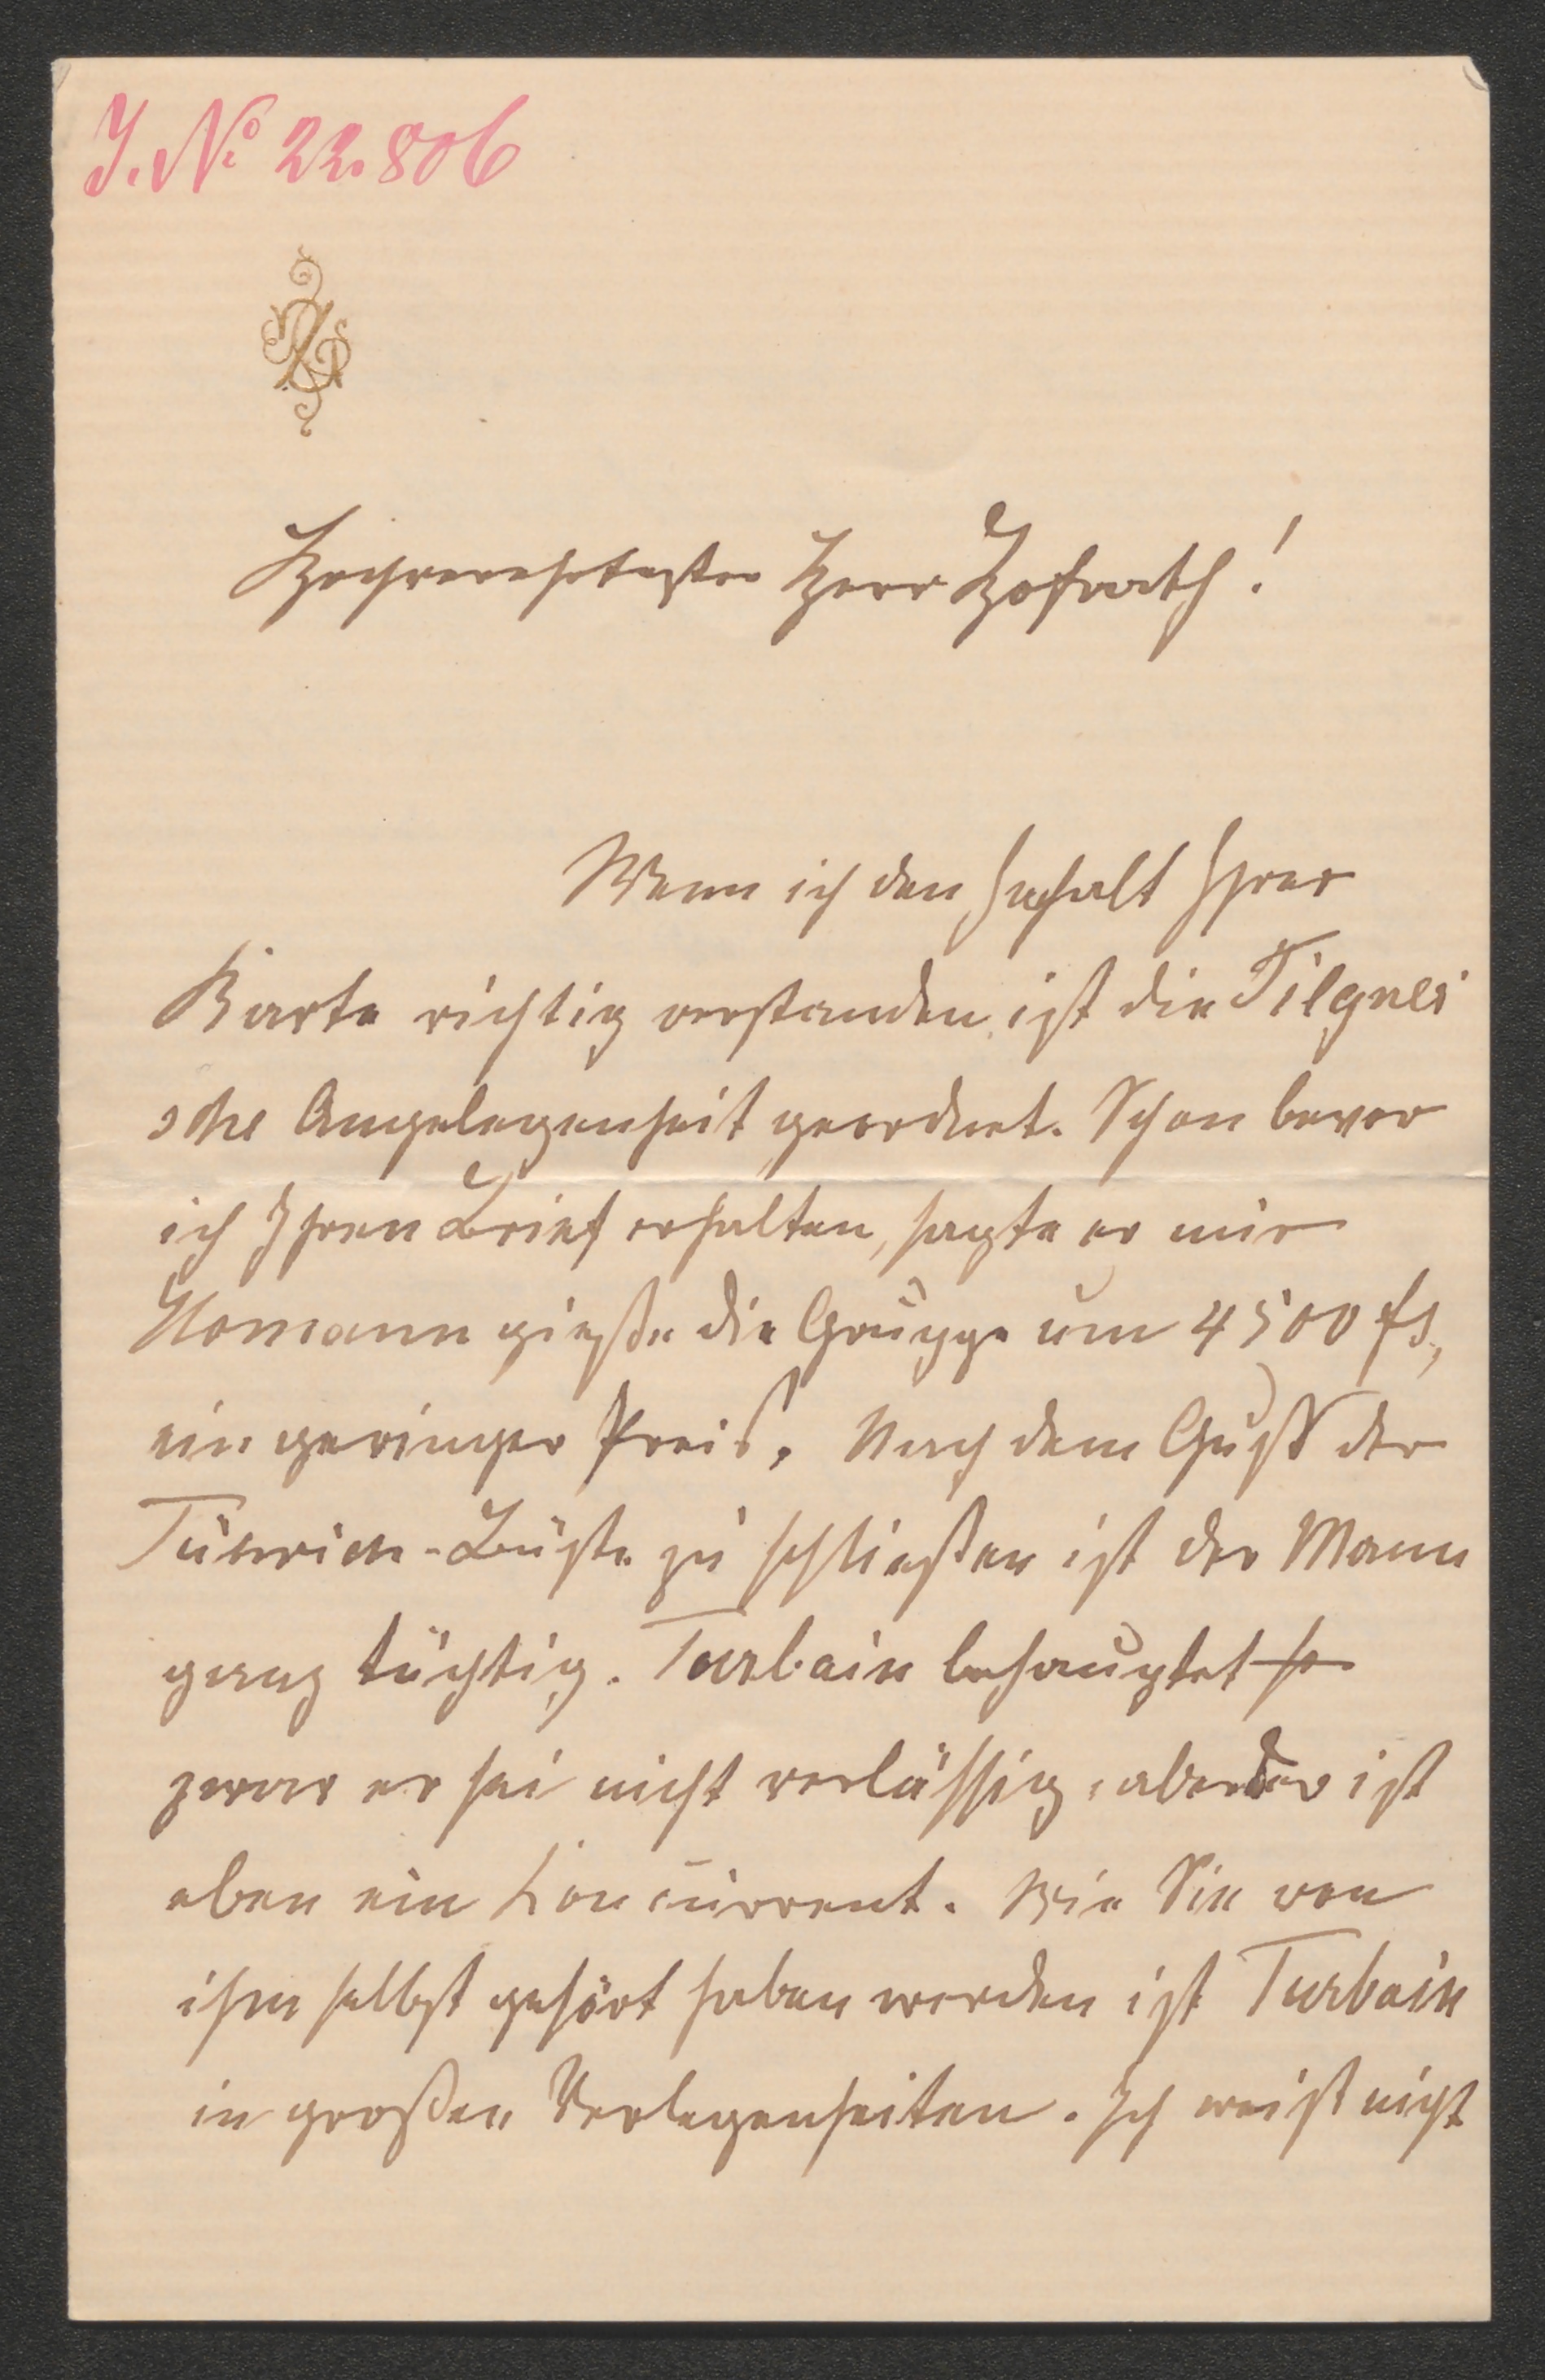 J. No 22.806
Hochverehrtester Herr Hofrath!
Wenn ich den Inhalt Ihrer
Karte richtig verstanden, ist die Tilgner
sche Angelegenheit geordnet. Schon bevor
ich Ihren Brief erhalten, sagte er mir
gieße die Gruppe um 4500 fl,
ein geringer Preis. Nach dem Guß der
Büste zu schließen ist der Mann
ganz tüchtig. Turbain behauptet
zwar er sei nicht verläßlig, aber der ist
eben ein Concurrent. Wie Sie von
ihm selbst gehört haben werden ist Turbain
in großen Verlegenheiten. Ich weiß nicht